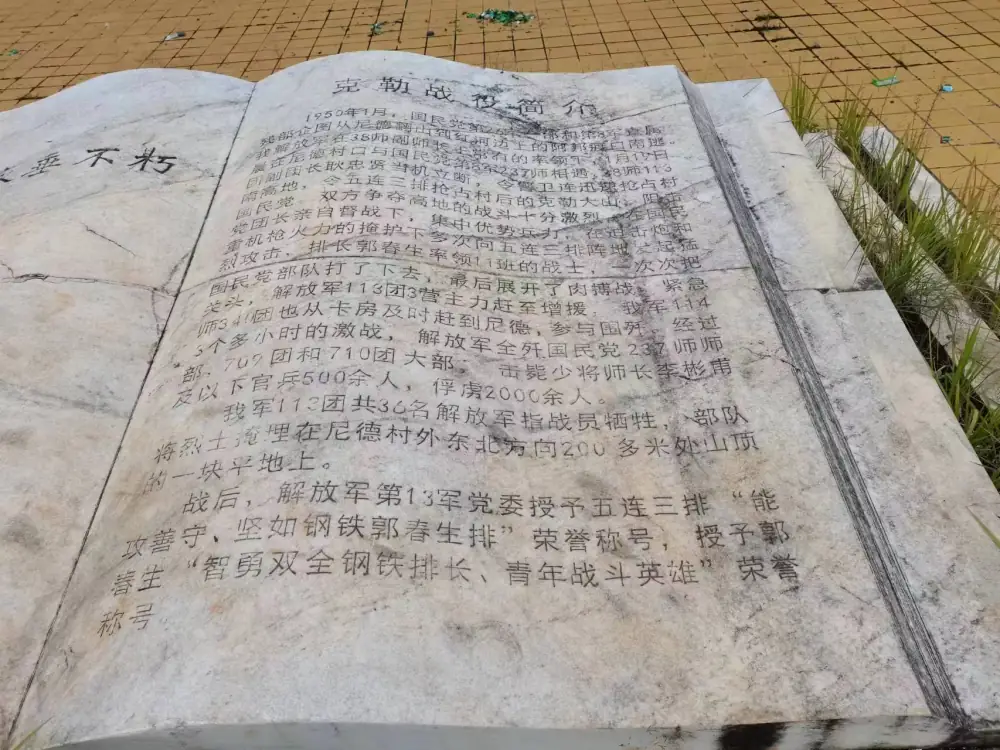 垂不朽
克勒战役简介
1950年1月，国民党第
残部企图从尼德翻山到红河边上的阿邦渡口南逃。
我解放军在38师副师长
晨在尼德村口与国民党第 237师相遇，38师113
团副团长耿忠贤当机立断，令警卫连迅速抢占村
南高地，令五连三排抢占村后的克勒大山，阻击
国民党。双方争夺高地的战斗十分激烈，在国民
党团长亲自督战下，集中优势兵力，在迫击炮和
重机枪火力的掩护下多次向五连三排阵地发起猛
烈攻击，排长郭春生率领11班的战士，一次次把
国民党部队打了下去，最后展开了肉搏战。紧急
关头，解放军113团3营主力赶至增援，我军114
师34 团也从卡房及时赶到尼德，参与围歼。经过
5个多小时的激战，解放军全歼国民党237师师
部，709团和710团大部，击毙少将师长李彬甫
及以下官兵500余人，俘虏2000余人。
我军113团共36名解放军指战员牺牲，部队
将烈士掩埋在尼德村外东北方向200多米处山顶
的一块平地上。
战后，解放军第13军党委授予五连三排“能
攻善守、坚如钢铁郭春生排”荣誉称号，授予郭
春生“智勇双全钢铁排长、青年战斗英雄”荣誉
称号